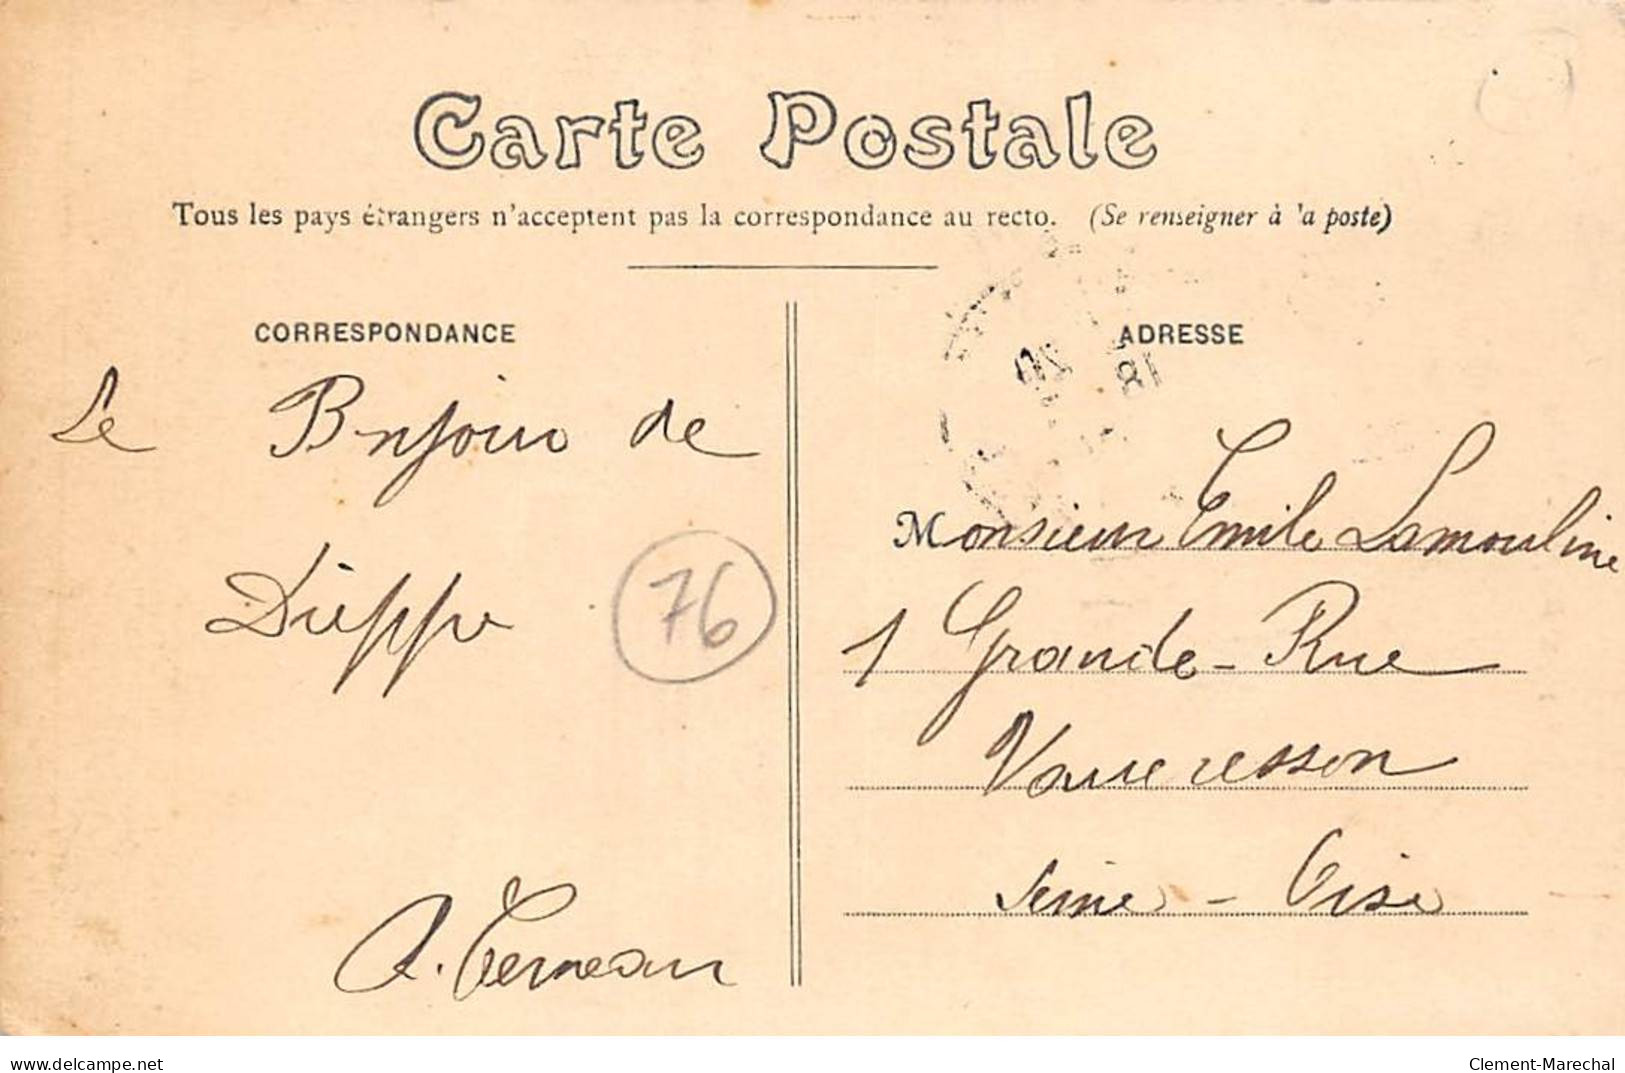 Carte Postale
Tous les pays étrangers n'acceptent pas la correspondance au recto. (Se renseigner à 'a poste)
CORRESPONDANCE
ADRESSE
Le Bonjour de
Dieppe
76
Monsieur Emile Lamouline
1 Grande-Rue
Vaucresson
Seine - Oise
delcampe.net
Clement-Marechal